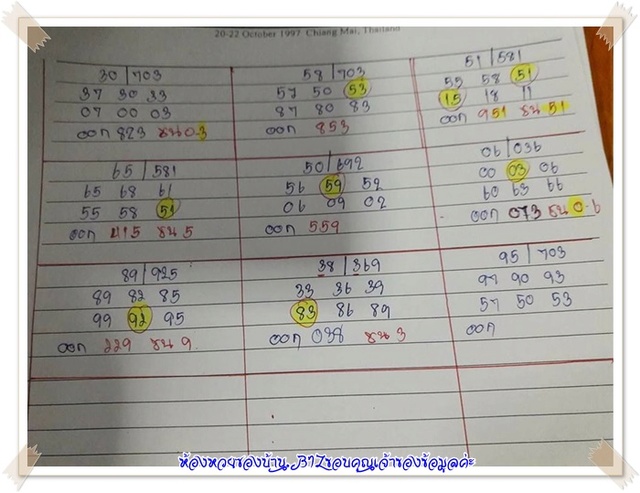 20-22 October 1997 Chiang Mai, Thailand
30 | 703
37 30 33
07 00 03
ออก 823 ชน 0-3
58 | 703
57 50 53
87 80 83
ออก 853
51 | 581
55 58 51
15 18 11
ออก 951 ชน 51
65 | 581
65 68 61
55 58 51
ออก 415 ชน 5
50 | 692
56 59 52
06 09 02
ออก 559
06 | 036
00 03 06
60 63 66
ออก 073 ชน 0-6
89 | 925
89 82 85
99 92 95
ออก 229 ชน 9
38 | 369
33 36 39
83 86 89
ออก 038 ชน 3
95 | 703
97 90 93
57 50 53
ออก
ห้องหวยของบ้าน B17ขอบคุณเจ้าของข้อมูลค่ะ